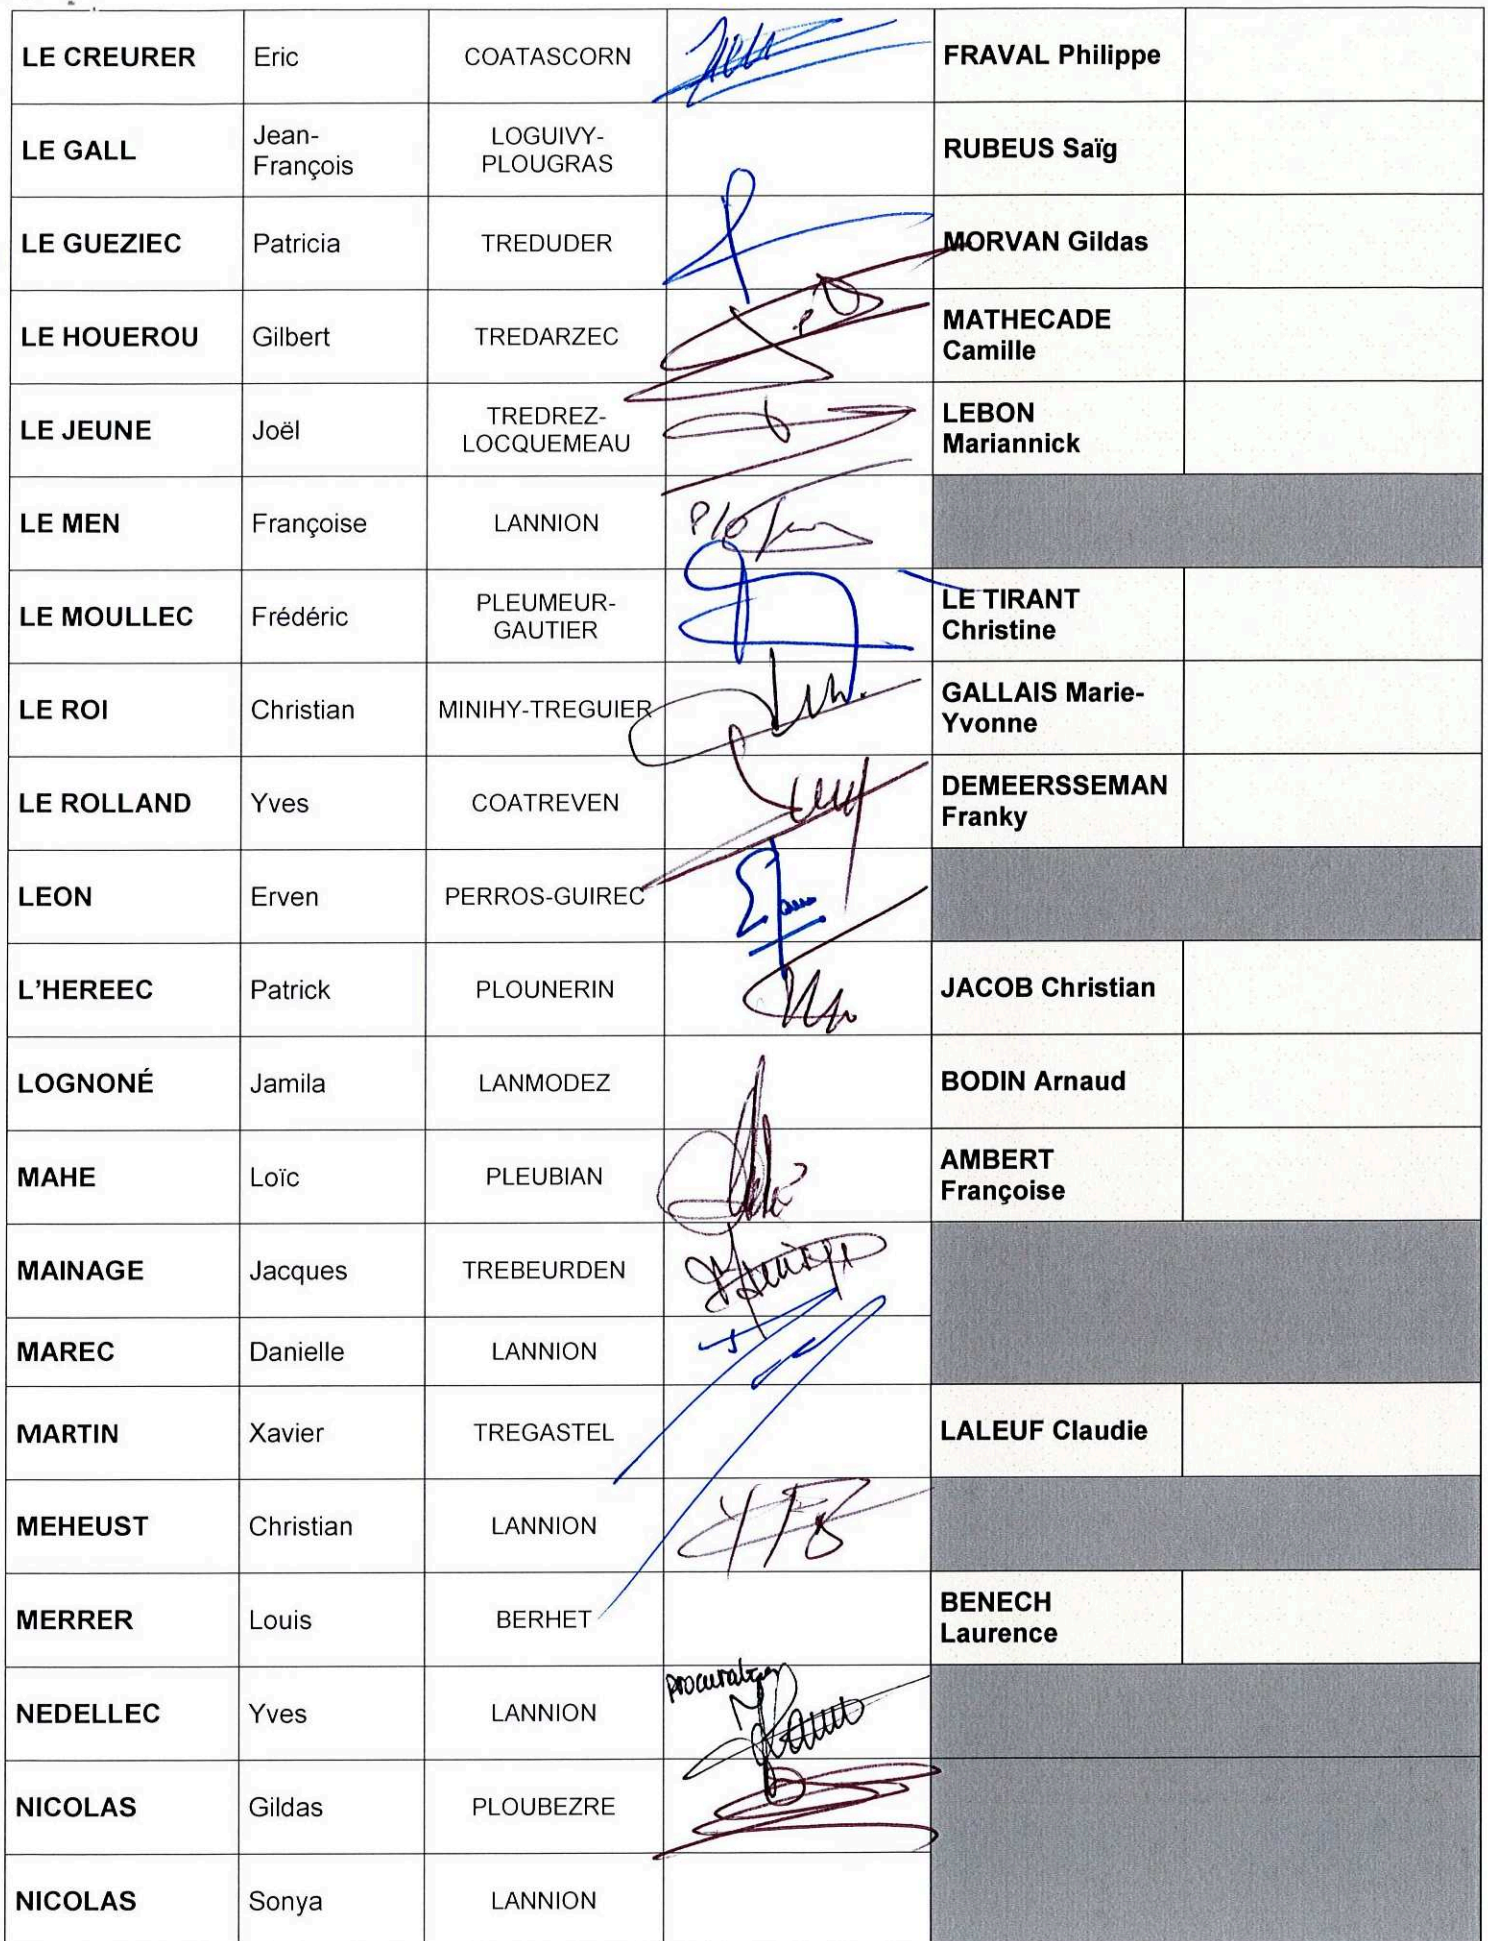 LE CREURER Eric COATASCORN FRAVAL Philippe
LE GALL Jean-
François LOGUIVY-
PLOUGRAS RUBEUS Saïg
LE GUEZIEC Patricia TREDUDER MORVAN Gildas
LE HOUEROU Gilbert TREDARZEC MATHECADE
Camille
LE JEUNE Joël TREDREZ-
LOCQUEMEAU LEBON
Mariannick
LE MEN Françoise LANNION
LE MOULLEC Frédéric PLEUMEUR-
GAUTIER LE TIRANT
Christine
LE ROI Christian MINIHY-TREGUIER GALLAIS Marie-
Yvonne
LE ROLLAND Yves COATREVEN DEMEERSSEMAN
Franky
LEON Erven PERROS-GUIREC
L'HEREEC Patrick PLOUNERIN JACOB Christian
LOGNONÉ Jamila LANMODEZ BODIN Arnaud
MAHE Loïc PLEUBIAN AMBERT
Françoise
MAINAGE Jacques TREBEURDEN
MAREC Danielle LANNION
MARTIN Xavier TREGASTEL LALEUF Claudie
MEHEUST Christian LANNION
MERRER Louis BERHET BENECH
Laurence
procuration
NEDELLEC Yves LANNION
NICOLAS Gildas PLOUBEZRE
NICOLAS Sonya LANNION